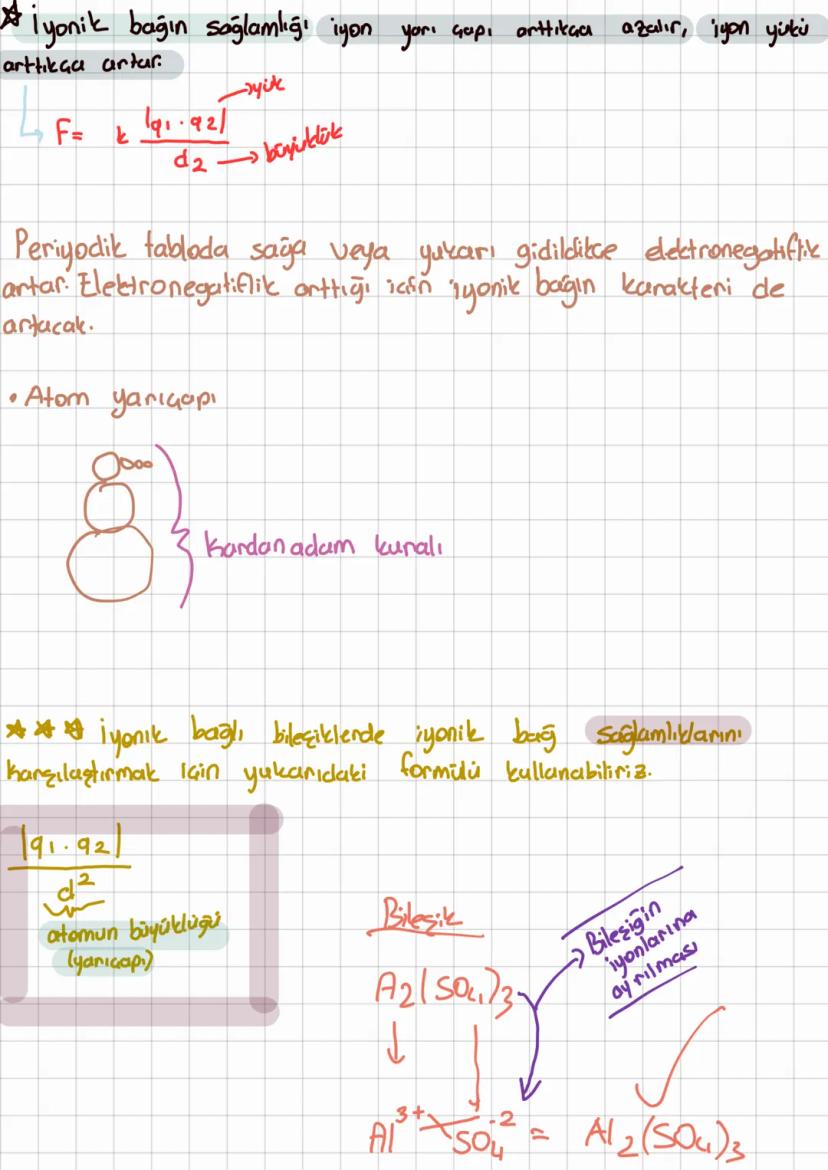 İyonik bağın sağlamlığı iyon yarı çapı arttıkca azalır, iyon yükü
arttıkca artar.
→yük
F= k |q1 . q2|
d2 → büyüklük
Periyodik tabloda sağa veya yukarı gidildikce elektronegatiflik
artar. Elektronegatiflik arttığı icin iyonik bağın karakteri de
artacak.
• Atom yarıçapı
Kardan adam kuralı
İyonik bağlı bileşiklerde iyonik bağ sağlamlıklarını
karşılaştırmak için yukarıdaki formülü kullanabiliriz.
|q1 . q2|
d²
atomun büyüklüğü
(yarıçapı)
Bileşik
→ Bileşiğin
iyonlarına
ayrılması
A2(SO4)3
Al³⁺ SO4⁻² = Al2(SO4)3